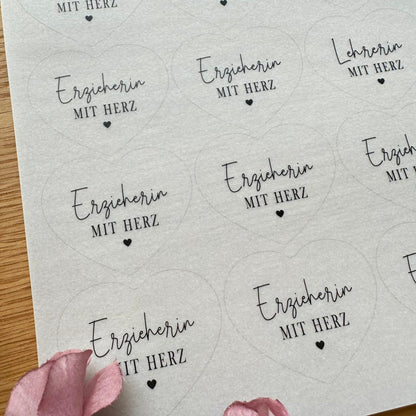 MIT HERZ
Erzieherin
MIT HERZ
Erzieherin
MIT HERZ
Lehrerin
MIT HERZ
Erzieherin
MIT HERZ
Erzieherin
MIT HERZ
Erzieherin
MIT HERZ
Erzieherin
MIT HERZ